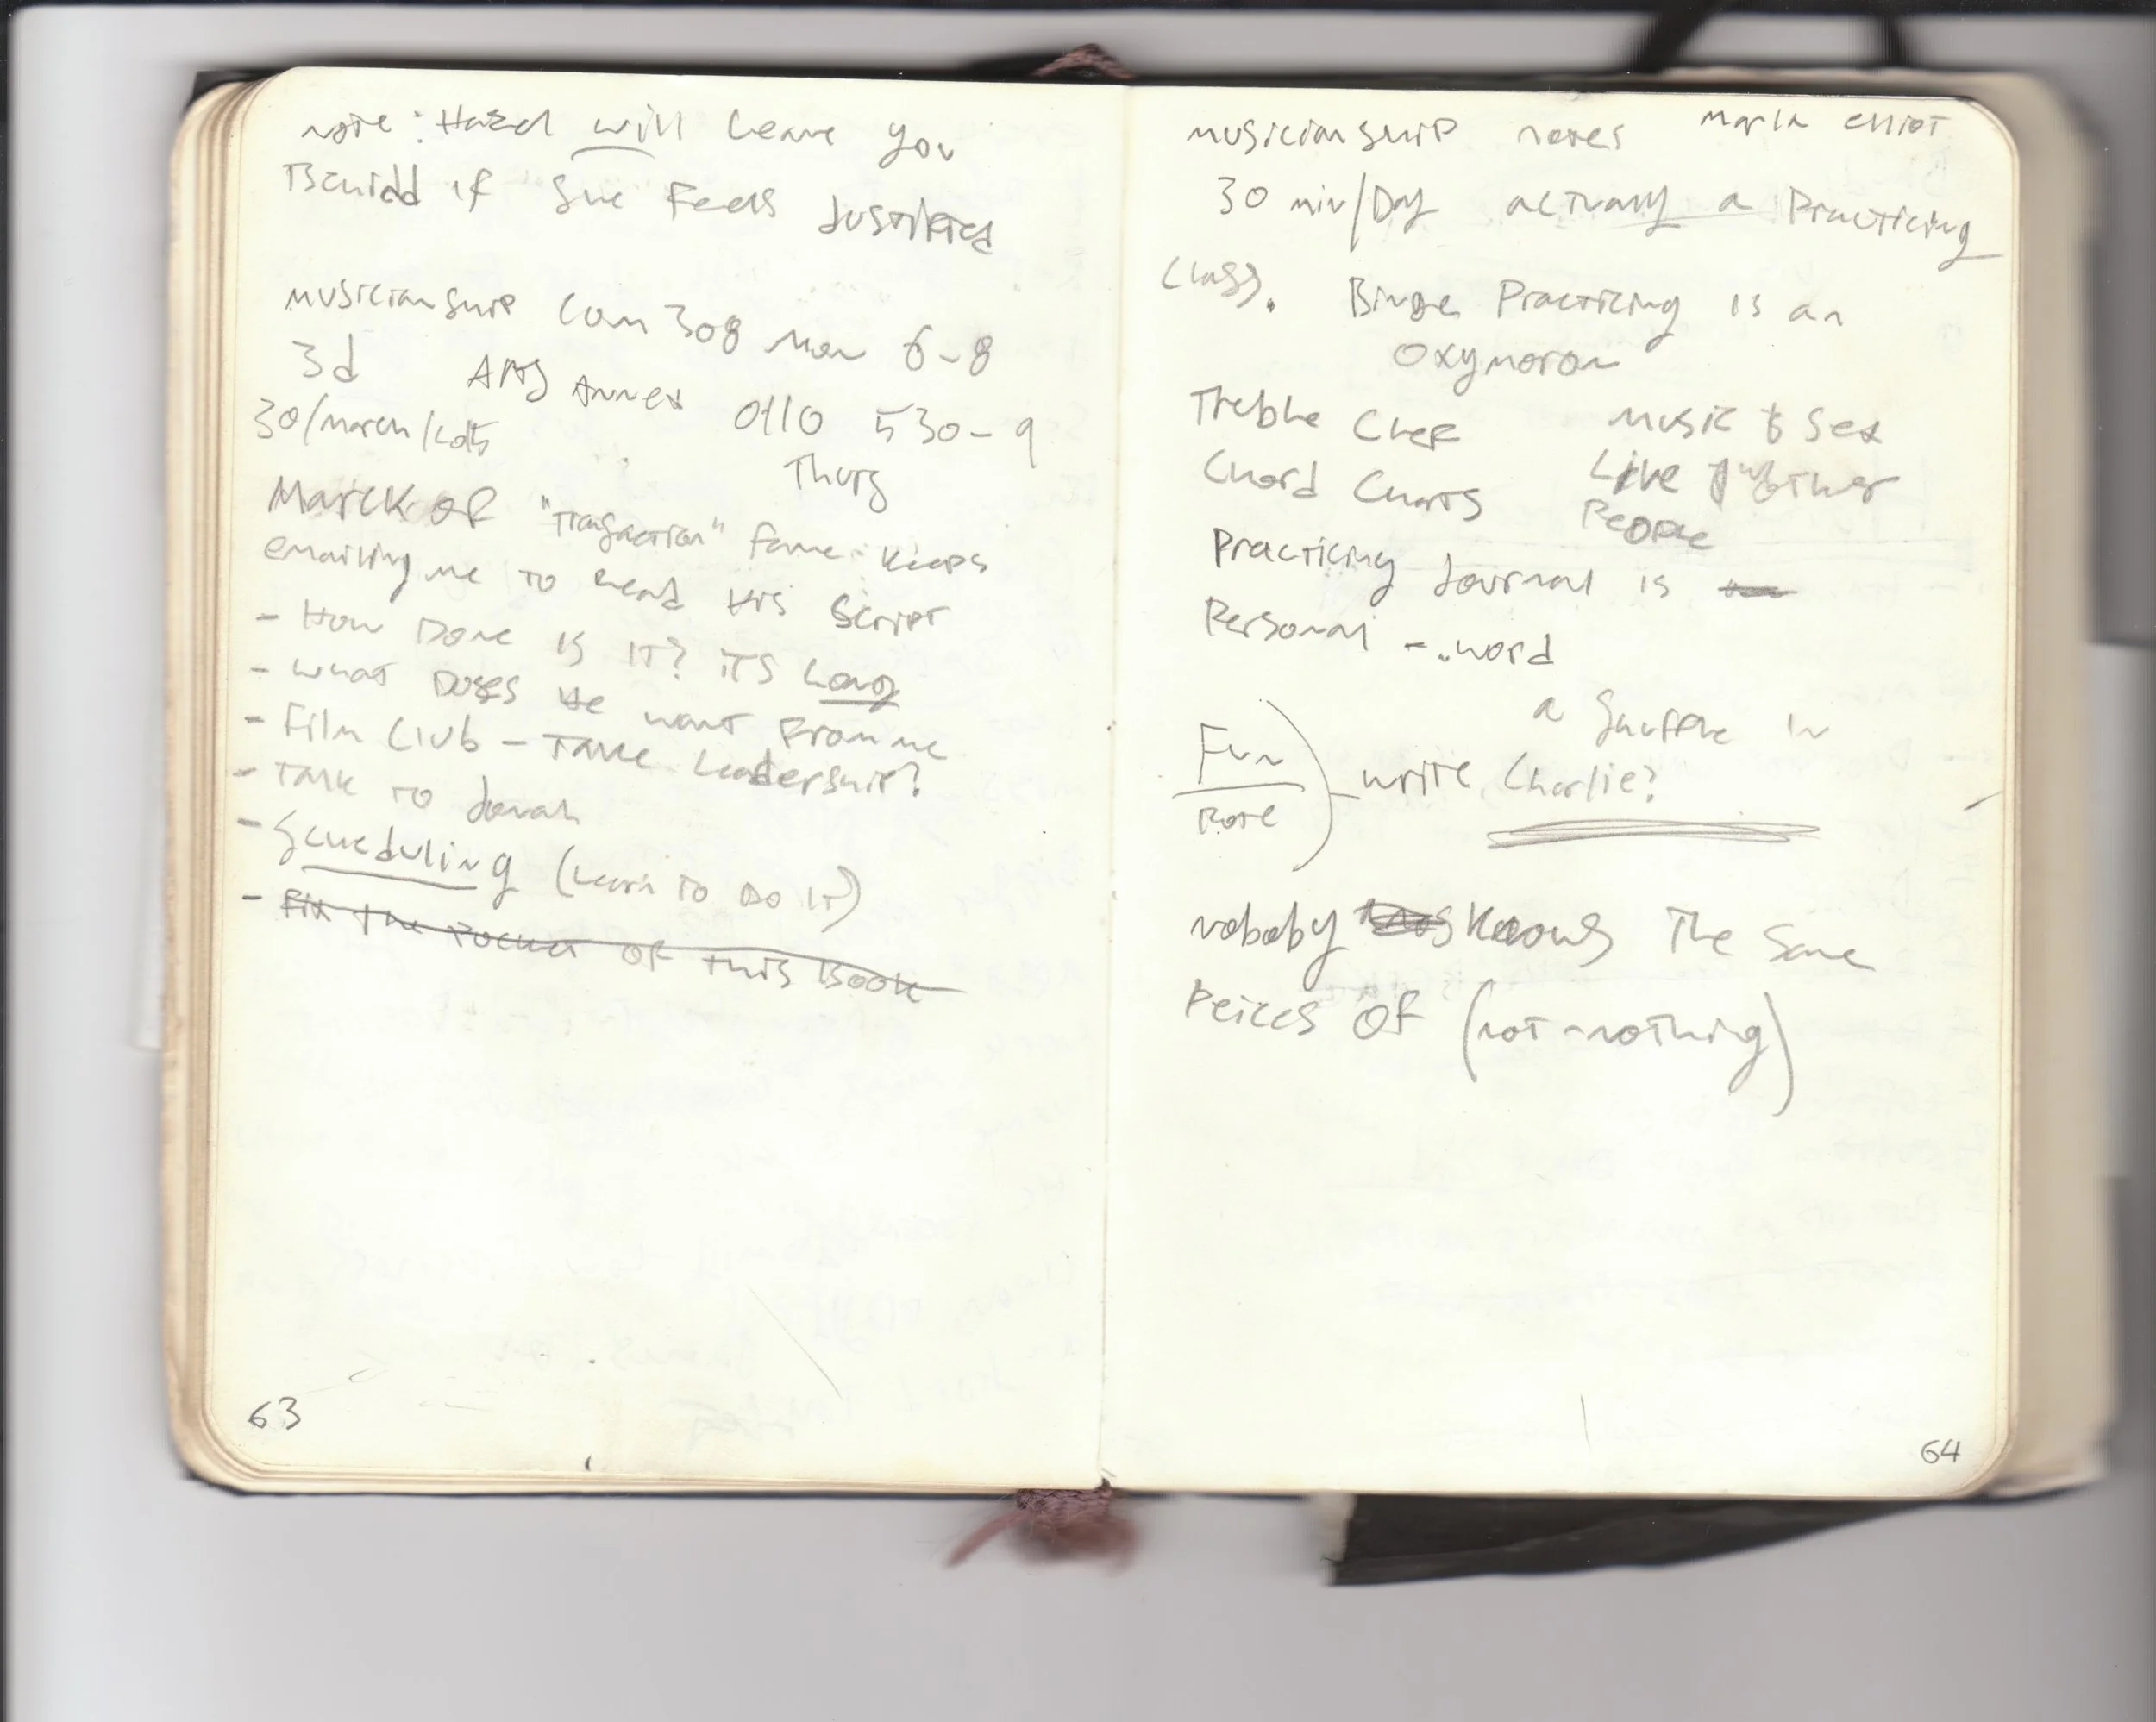 note: Hazel will leave you
Behidd if She Feels Justified
Musicianship Com 308 Mon 6-8
3d Arts Annex 0110 530-9
Thurs
30/march/
Marck of "Transaction" fame keeps
emailing me to read His Script
- How Done is it? its Long
- what Does He want From me
- Film Club - Take Leadership?
- Talk to Jonah
- Scheduling (Learn to Do it)
- Fix the Pocket of this Book
63
musicianship notes Marla elliot
30 min/Day actually a Practicing
Class. Binge Practicing is an
Oxymoron
Treble Clef
Chord Charts
Music & Sex
Live Other
People
Practicing Journal is
Personal - word
a Shuffle in
Fun
Rote
write Charlie?
nobody knows The Same
Peices OF (not-nothing)
64